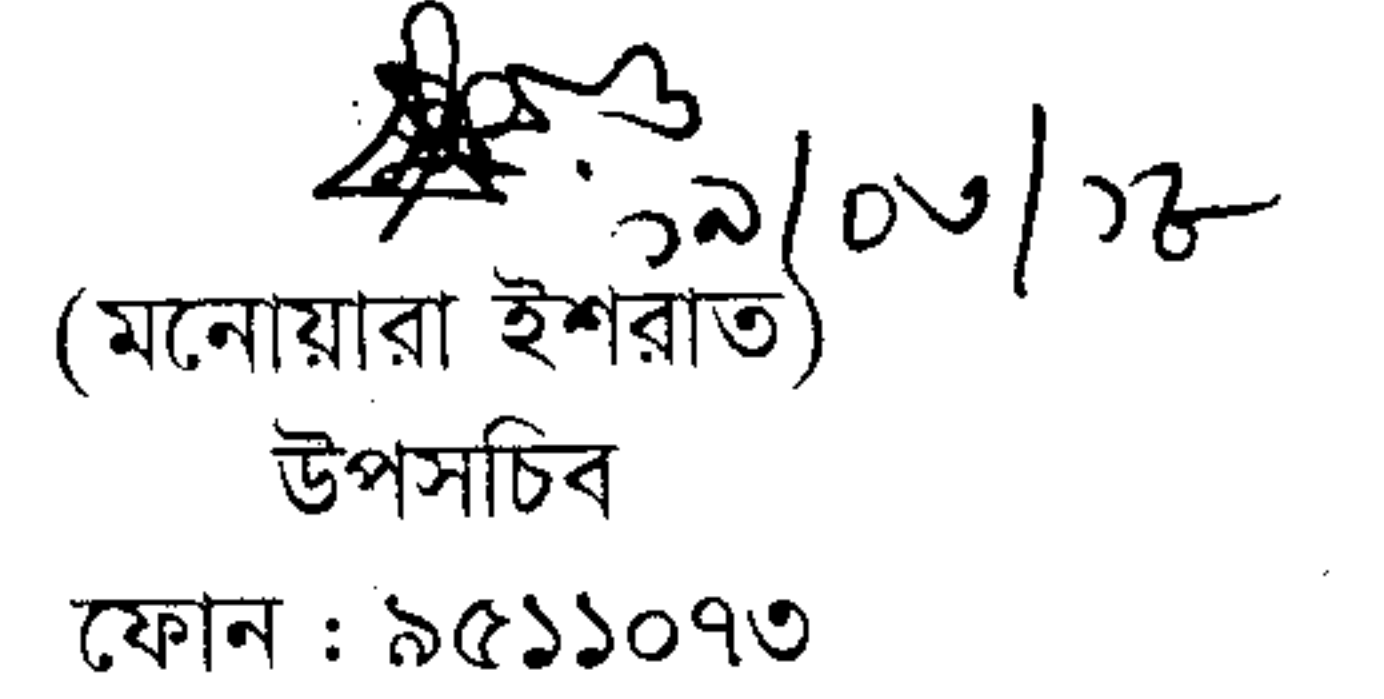 ১৯/০৩/১৮
(মনোয়ারা ইশরাত)
উপসচিব
ফোন : ৯৫১১০৭৩